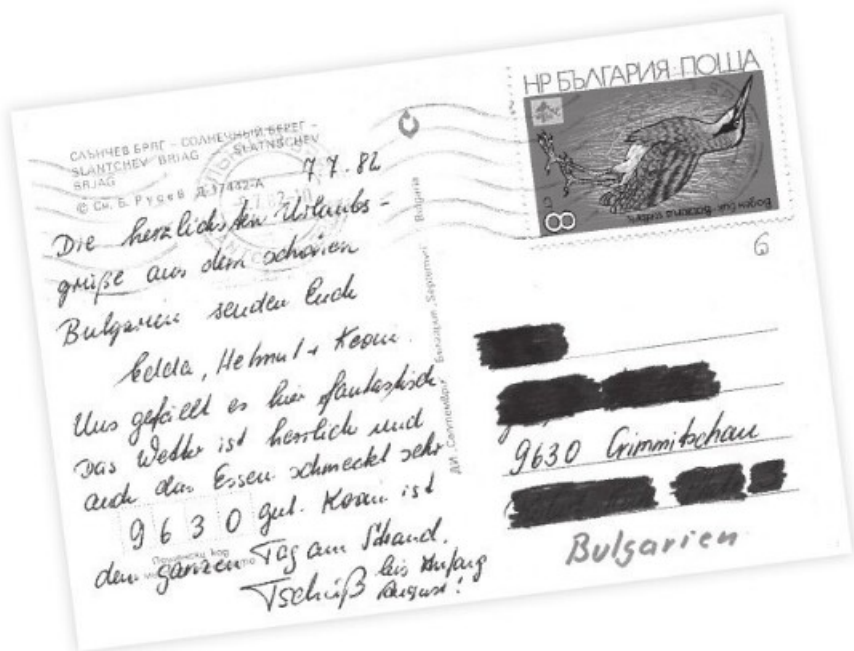 СЛЪНЧЕВ БРЯГ - СОЛНЕЧНЫЙ БЕРЕГ -
SLANTCHEV BRJAG - SLATNSCHEV
BRJAG
© См. Б. Русев Д-37442-А
7.7.82
Die herzlichsten Urlaubs-
grüße aus dem schönen
Bulgarien senden Euch
Edda, Helmut +
Uns gefällt es hier fantastisch.
Das Wetter ist herrlich und
auch das Essen schmeckt sehr
9630 gut. ist
Пощенски код
den ganzen Tag am Strand.
Tschüß bis Anfang
August!
ДИ „Септември“ България, „Septemvri“ Bulgaria
НР БЪЛГАРИЯ·ПОЩА
8
Воден бик Botaurus stellaris
6
9630 Crimmitschau
Bulgarien